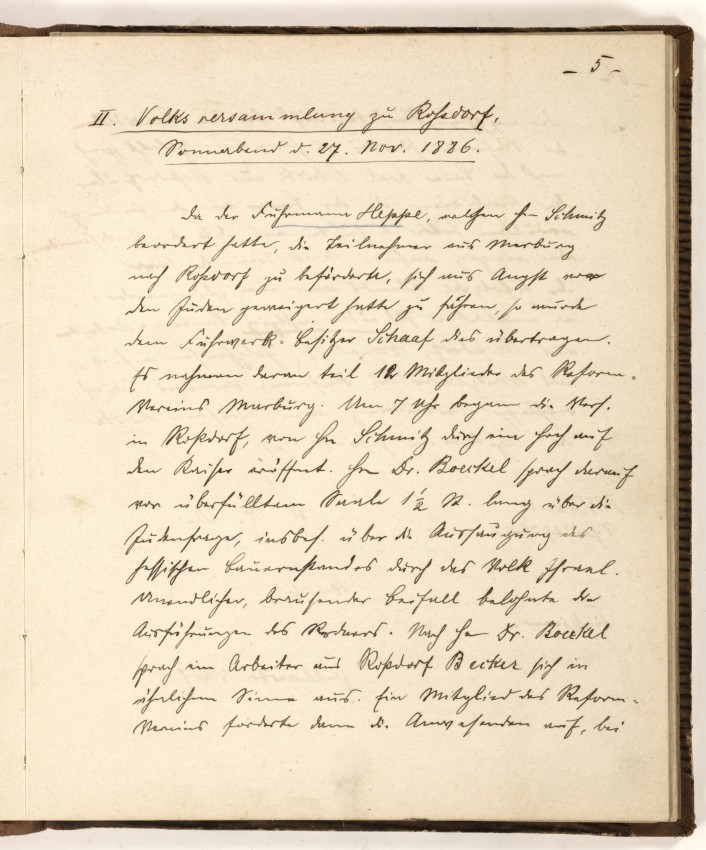 - 5 -
II. Volksversammlung zu Roßdorf,
Sonnabend d. 27. Nov. 1886.
Da der Fuhrmann Heppe, welchen H Schmitz
beordert hatte, die Teilnehmer aus Marburg
nach Roßdorf zu beförderte, sich aus Angst vor
den Juden geweigert hatte zu fahren, so wurde
dem Fuhrwerk-besitzer Schaaf dies übertragen.
Es nahmen daran teil Mitglieder des Reform-
Vereins Marburg. Um 7 Uhr begann die Vers.
in Roßdorf, von H Schmitz durch ein Hoch auf
den Kaiser eröffnet. H Dr. Boeckel sprach darauf
vor überfülltem Saale 1½ St. lang über die
Judenfrage, insbes. über die Aussaugung des
hessischen Bauernstandes durch das Volk Israel.
Unendlicher, brausender Beifall belohnte die
Ausführungen des Redners. Nach H Dr. Boeckel
sprach ein Arbeiter aus Roßdorf Becker sich in
ähnlichem Sinne aus. Ein Mitglied des Reform-
Vereins forderte dann d. Anwesenden auf, bei